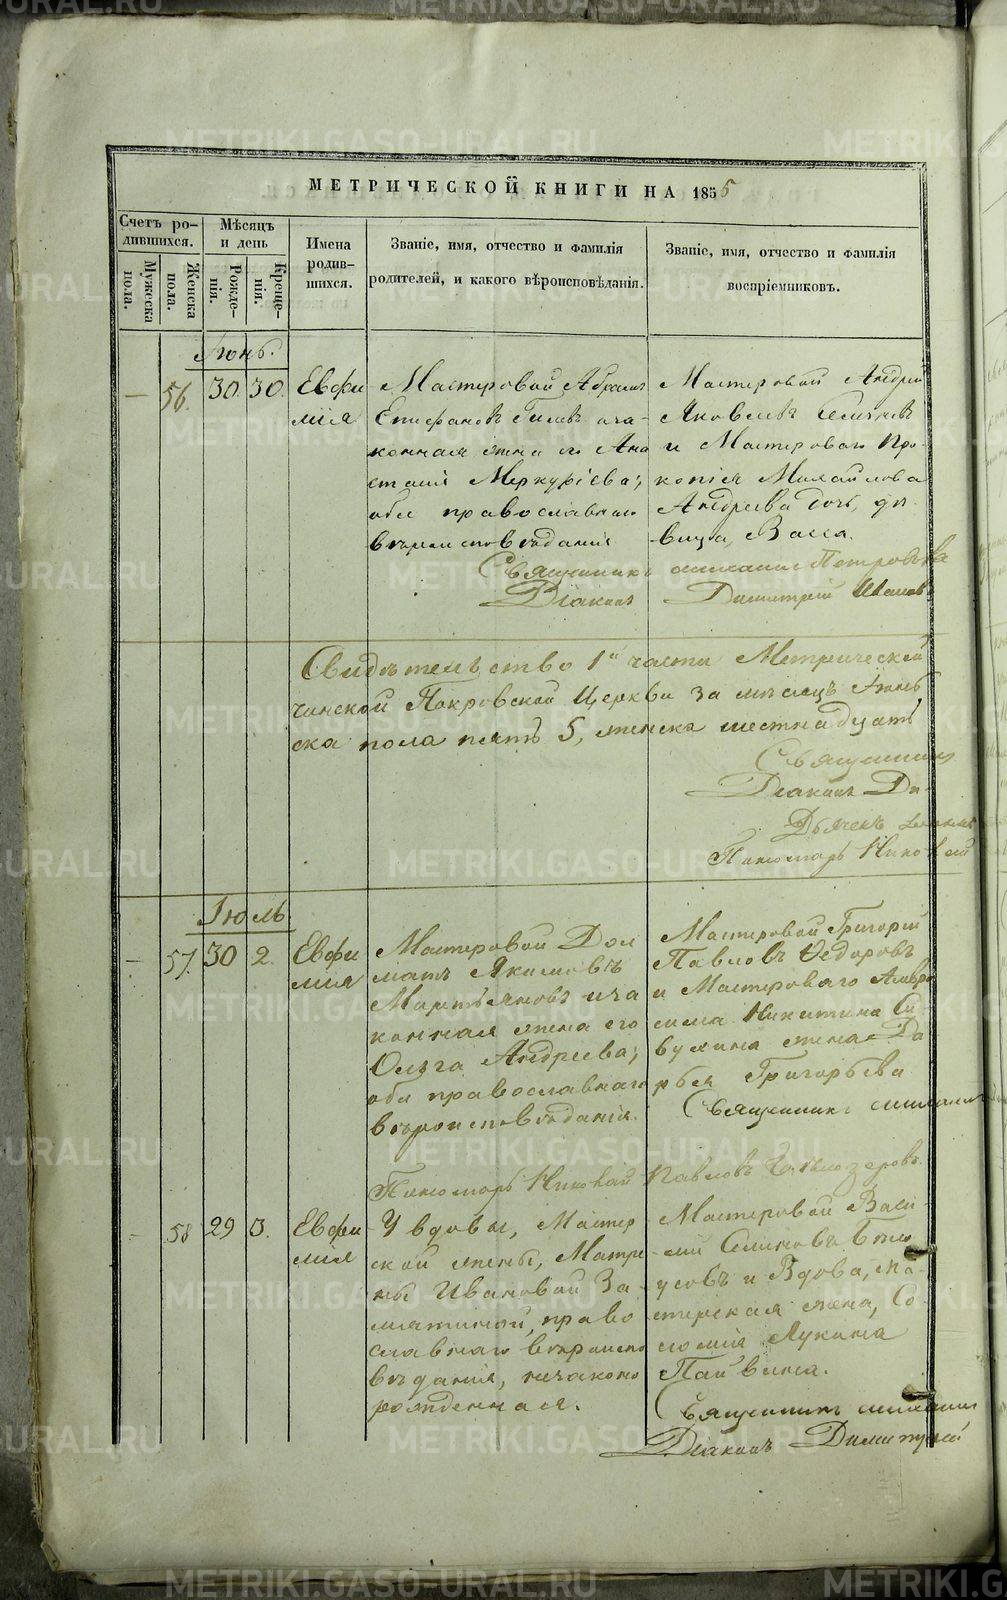 МЕТРИЧЕСКОЙ КНИГИ НА 1855
Счетъ ро-
дившихся.
Мужеска
пола.
Женска
пола.
Мѣсяцъ
и день
Рожде-
нія.
Креще-
нія.
Имена
родив-
шихся.
Званіе, имя, отчество и фамилія
родителей, и какого вѣроисповѣданія.
Званіе, имя, отчество и фамилія
воспріемниковъ.
Іюнь.
— 56. 30. 30.
Евфи
мія
Мастеровой Абрамъ
Епифановъ и за-
конная жена его Ана
стасія Меркуріева;
оба православнаго
вѣроисповѣданія
Мастеровой Андрей
Яковлевъ
и Мастероваго Про-
копія Михайлова
Андреева дочь, дѣ-
вица, Васса.
Священникъ Петровъ
Діаконъ Димитрій
Свидѣтельство 1й части Метрической
чинской Покровской Церкви за мѣсяцъ Іюнь
ска пола пять 5, женска шестнадцать
Священникъ
Діаконъ Ди-
Дьячекъ
Пономарь Николай
Іюль
— 57. 30 2.
Евфи
мія
Мастеровой Дол
матъ Якимовъ
Мартьяновъ и за
конная жена его
Ольга Андреева;
оба православнаго
вѣроисповѣданія.
Мастеровой Григорій
Павловъ Ѳедоровъ
и Мастероваго Амвро
сима Никитина
жена Да
рья Григорьева
Священникъ
Пономарь Николай Павловъ
— 58 29 3.
Евфи
мія
У вдовы, Мастер
ской жены, Матре
ны Ивановой За-
мятиной, право
славнаго вѣроиспо
вѣданія, незаконо
рожденная.
Мастеровой Васи-
лій Семеновъ Бѣло
усовъ и Вдова, ма-
стерская жена, Со
ломія Лукина
Пайвина.
Священникъ
Діаконъ Димитрій
METRIKI.GASO-URAL.RU